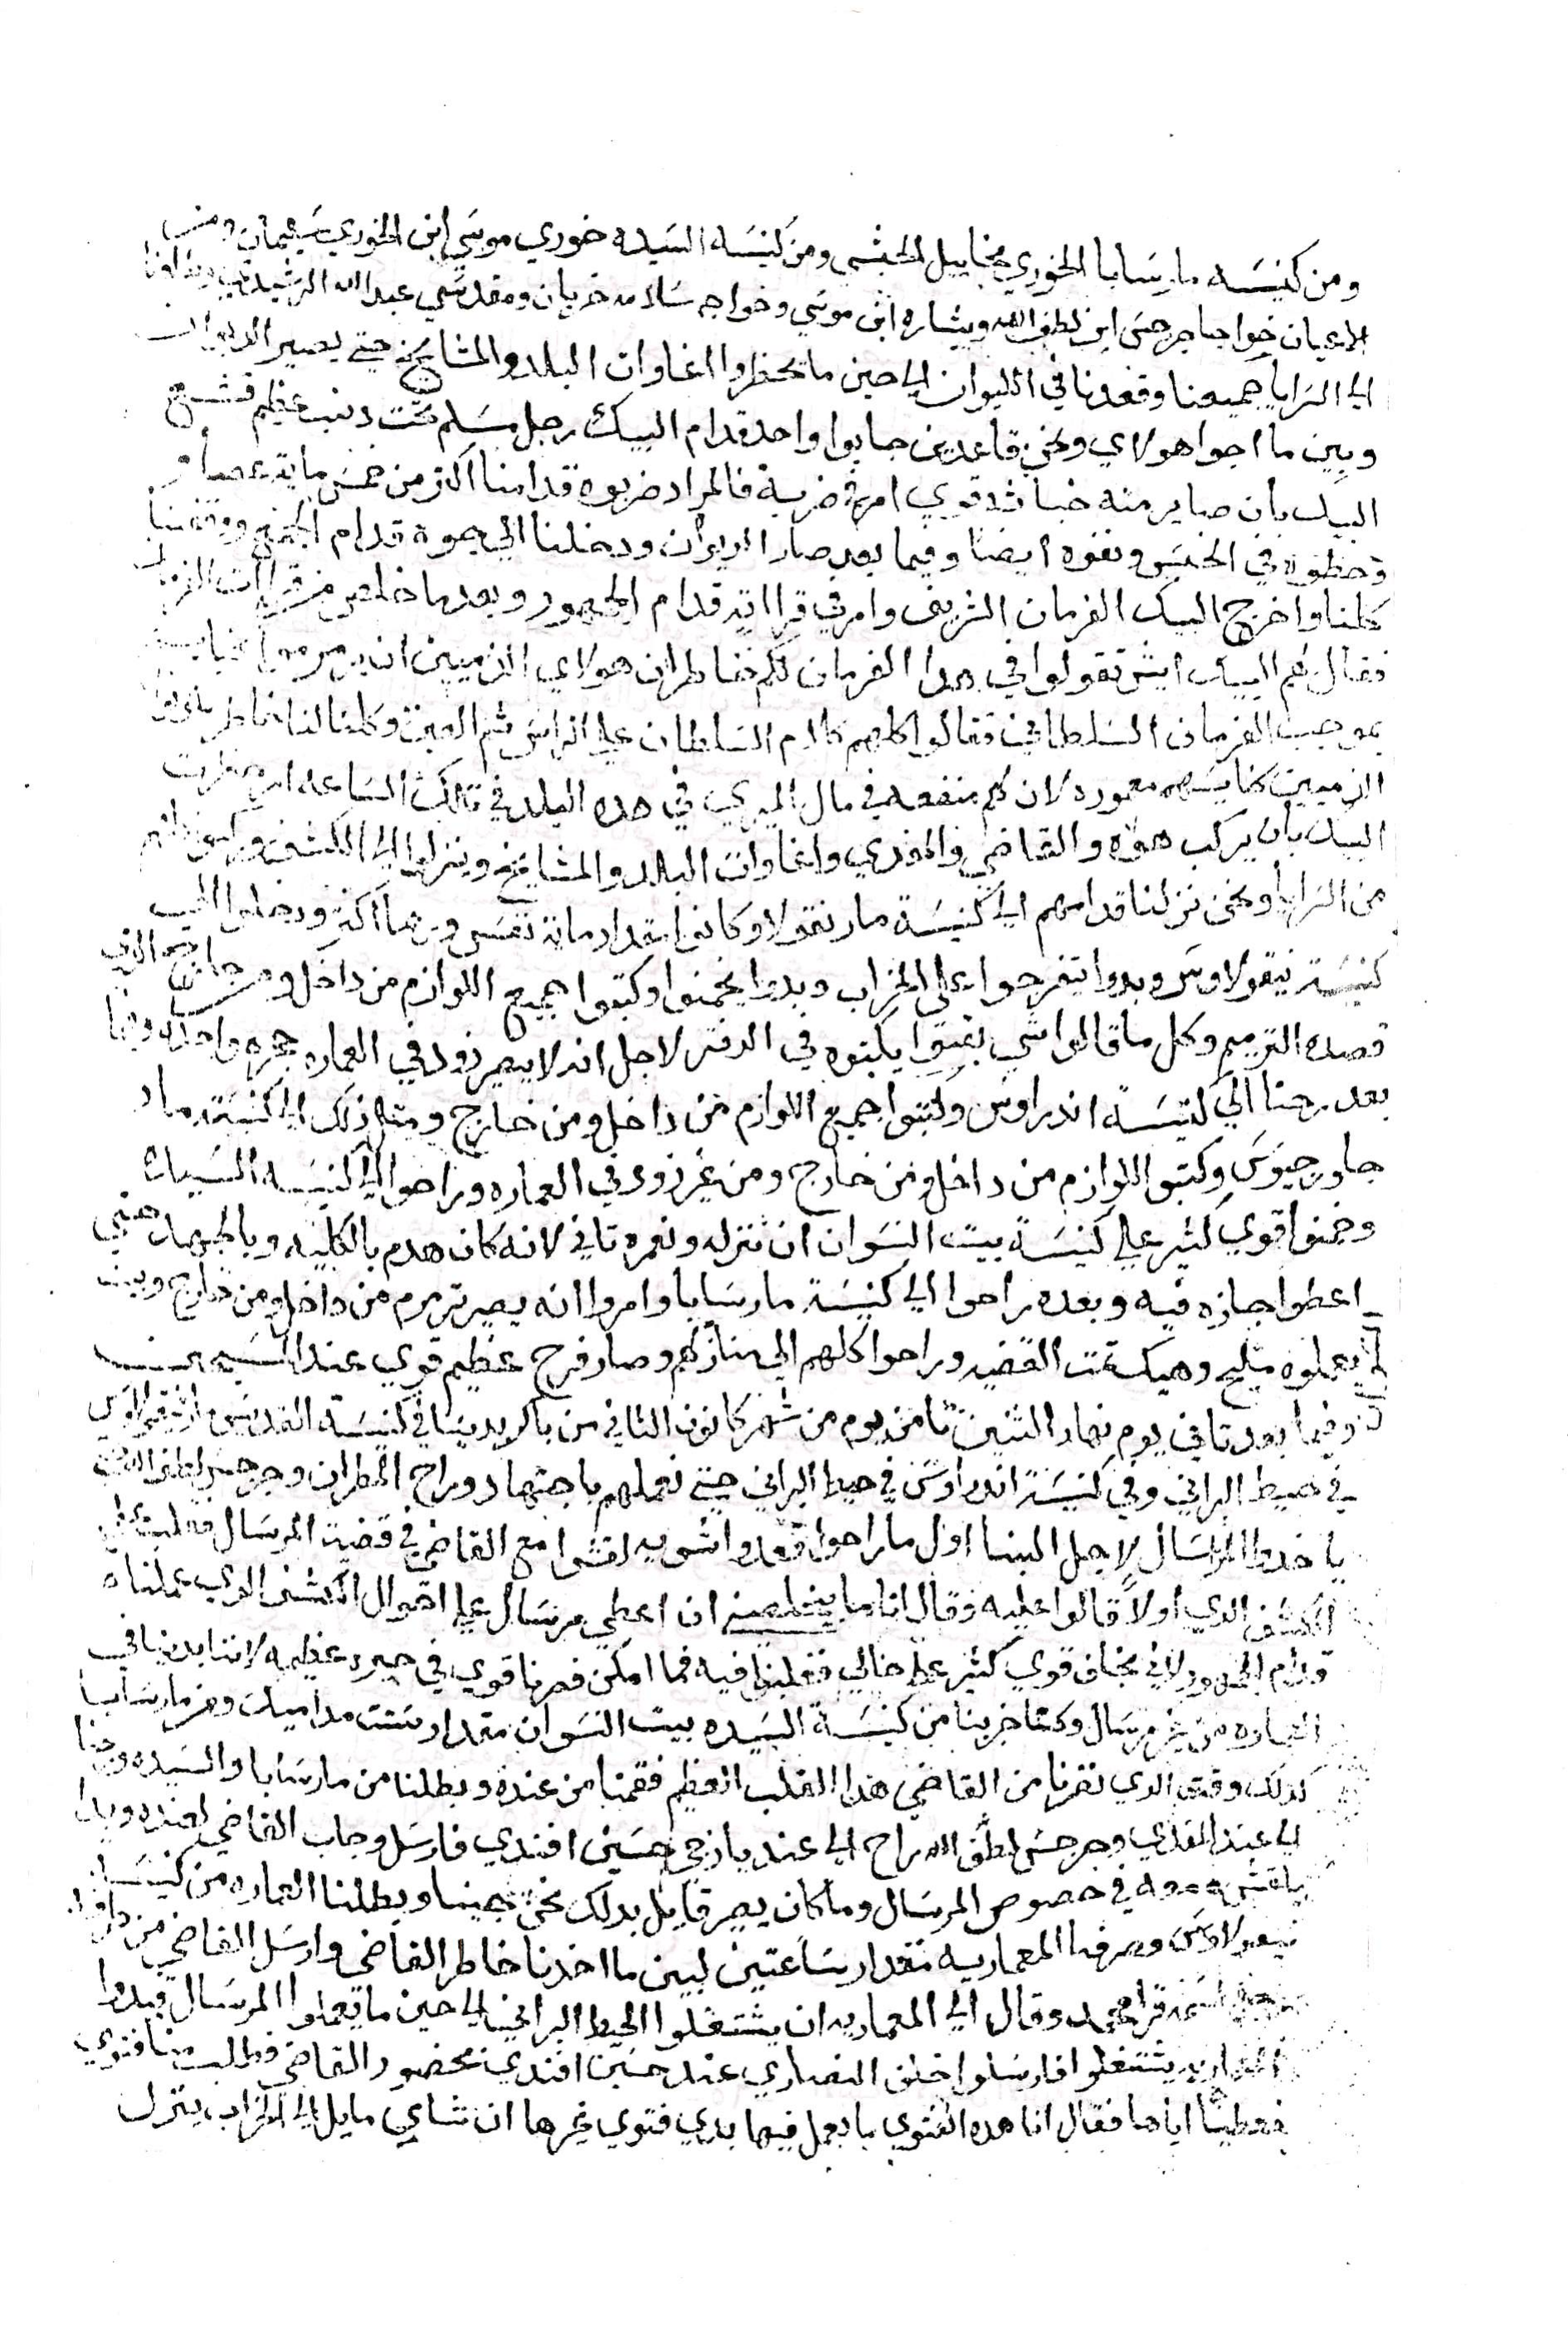 ومن كنيسه مارسابا الخوري مخاييل الحبشي ومن كنيسه السيده خوري موسي ابن الخوري سليمان ومن
الاعيان خواجا جرجس ابن لطف الله وبشاره ابن موسي وخواجه سلامه خربان ومقدسي عبدالله الرشيدي
الي السرايا جميعنا وقعدنا في الليوان الي حين ما يحظروا اغاوات البلد والمشايخ حتي يصير الديوان
وبين ما اجوا هولاي ونحن قاعدين جابوا واحد قدام البيك رجل مسلم تحت دنب عظيم
البيك بان صاير منه خباثه قوي امر في ضربه فالمراد ضربوه قدامنا اكتر من خمس ماية عصا و
وحطوه في الحبس ونفوه ايضا وفيما بعد صار الديوان ودخلنا الي جوه قدام الجميع ووقفنا
كلنا واخرج البيك الفرمان الشريف وامر في قرااته قدام الجمهور وبعدما خلص من قراات الفرمان
فقال لهم البيك ايش تقولوا في هدا الفرمان لكم خاطر ان هولاي الذميين ان يرمموا كنايسهم
بموجب الفرمان السلطاني فقالوا كلهم كلام السلطان علي الراس ثم العين وكلنا لنا خاطر
الذميين كنايسهم معموره لان لهم منفعه في مال الميري في هده البلد في تلك الساعه امر حضرت
البيك بان يركب هوه والقاضي والمفدي واغاوات البلد والمشايخ وينزلوا الي الكشف
من السرايا ونحن نزلنا قدامهم الي كنيسة مار نقولا وكانوا مقدار ماية نفس وربما اكتر ودخلوا الي
كنيسة نيقولاوس وبدوا يتفرجوا علي الخراب وبدوا يخمنوا وكتبوا جميع اللوازم من داخل ومن خارج الدي
قصده الترميم وكل ما قالوا شي بقوا يكتبوه في الدفتر لاجل انه لا يصير زود في العماره حجره واحده وفيما
بعد رحنا الي كنيسة اندراوس وكتبوا جميع اللوازم من داخل ومن خارج ومثل ذلك الي كنيسة مار
جاورجيوس وكتبوا اللوازم من داخل ومن خارج ومن غير زود في العماره وراحوا الي كنيسه السيده
وخمنوا قوي كثير علي كنيسة بيت النسوان ان ننزله ونعمره تاني لانه كان هدم بالكليه وبالجهد حتي
اعطوا اجازه فيه وبعده راحوا الي كنيسة مارسابا وامروا انه يصير ترمرم من داخل ومن خارج وبيت
يعملوه مليح وهيك تمت القضيه وراحوا كلهم الي منازلهم وصار فرح عظيم قوي عند المسيحيين
وفيما بعد تاني يوم نهار التنين تامن يوم من شهر كانون التاني من باكر بدينا في كنيسة القديس نيقولاوس
في حيط البراني وفي كنيسة اندراوس في حيط البراني حتي نعملهم باجتهاد وراح المطران وجرجس لطف الله
ياخدوا المرسال لاجل البنا اول ما راحوا قعدوا شويه لقشوا مع القاضي في قضية المرسال
الكشف الدي اولا قالوا عليه فقال انا ما يخلصني ان اعطي مرسال علي احوال الكشف الدي عملناه
قدام الجمهور لاني بخاف قوي كثير علي حالي فغلبنا فيه فما امكن فصرنا قوي في حيره عظيمه لاننا بدينا في
العماره من غير مرسال وكنا خربنا من كنيسة السيده بيت النسوان مقدار ستت مداميك ومن مارسابا
كدلك وقت الدي نضرنا من القاضي هدا القلب العظيم فقمنا من عنده وبطلنا من مارسابا والسيده وجينا
الي عند المفدي وجرجس لطف الله راح الي عند يازجي حسين افندي فارسل وجاب القاضي لعنده وبدا
يلاقش معه في خصوص المرسال وما كان يصير قابل بدلك نحن جمعنا وبطلنا العماره من كنيسة
نيقولاوس وصرفنا المعماريه مقدار ساعتين لبين ما اخدنا خاطر القاضي وارسل القاضي من
قرا محمد وقال الي المعماريه ان يشتغلوا الحيط البراني الي حين ما تعملوا المرسال فبدوا
المعماريه يشتغلوا فارسلوا خلف النصاري عند حسين افندي بحضور القاضي فطلب منا فتوي
فعطينا اياها فقال انا هده الفتوي ما بعمل فيها بدي فتوي غيرها ان شاي مايل الي الخراب ينزل